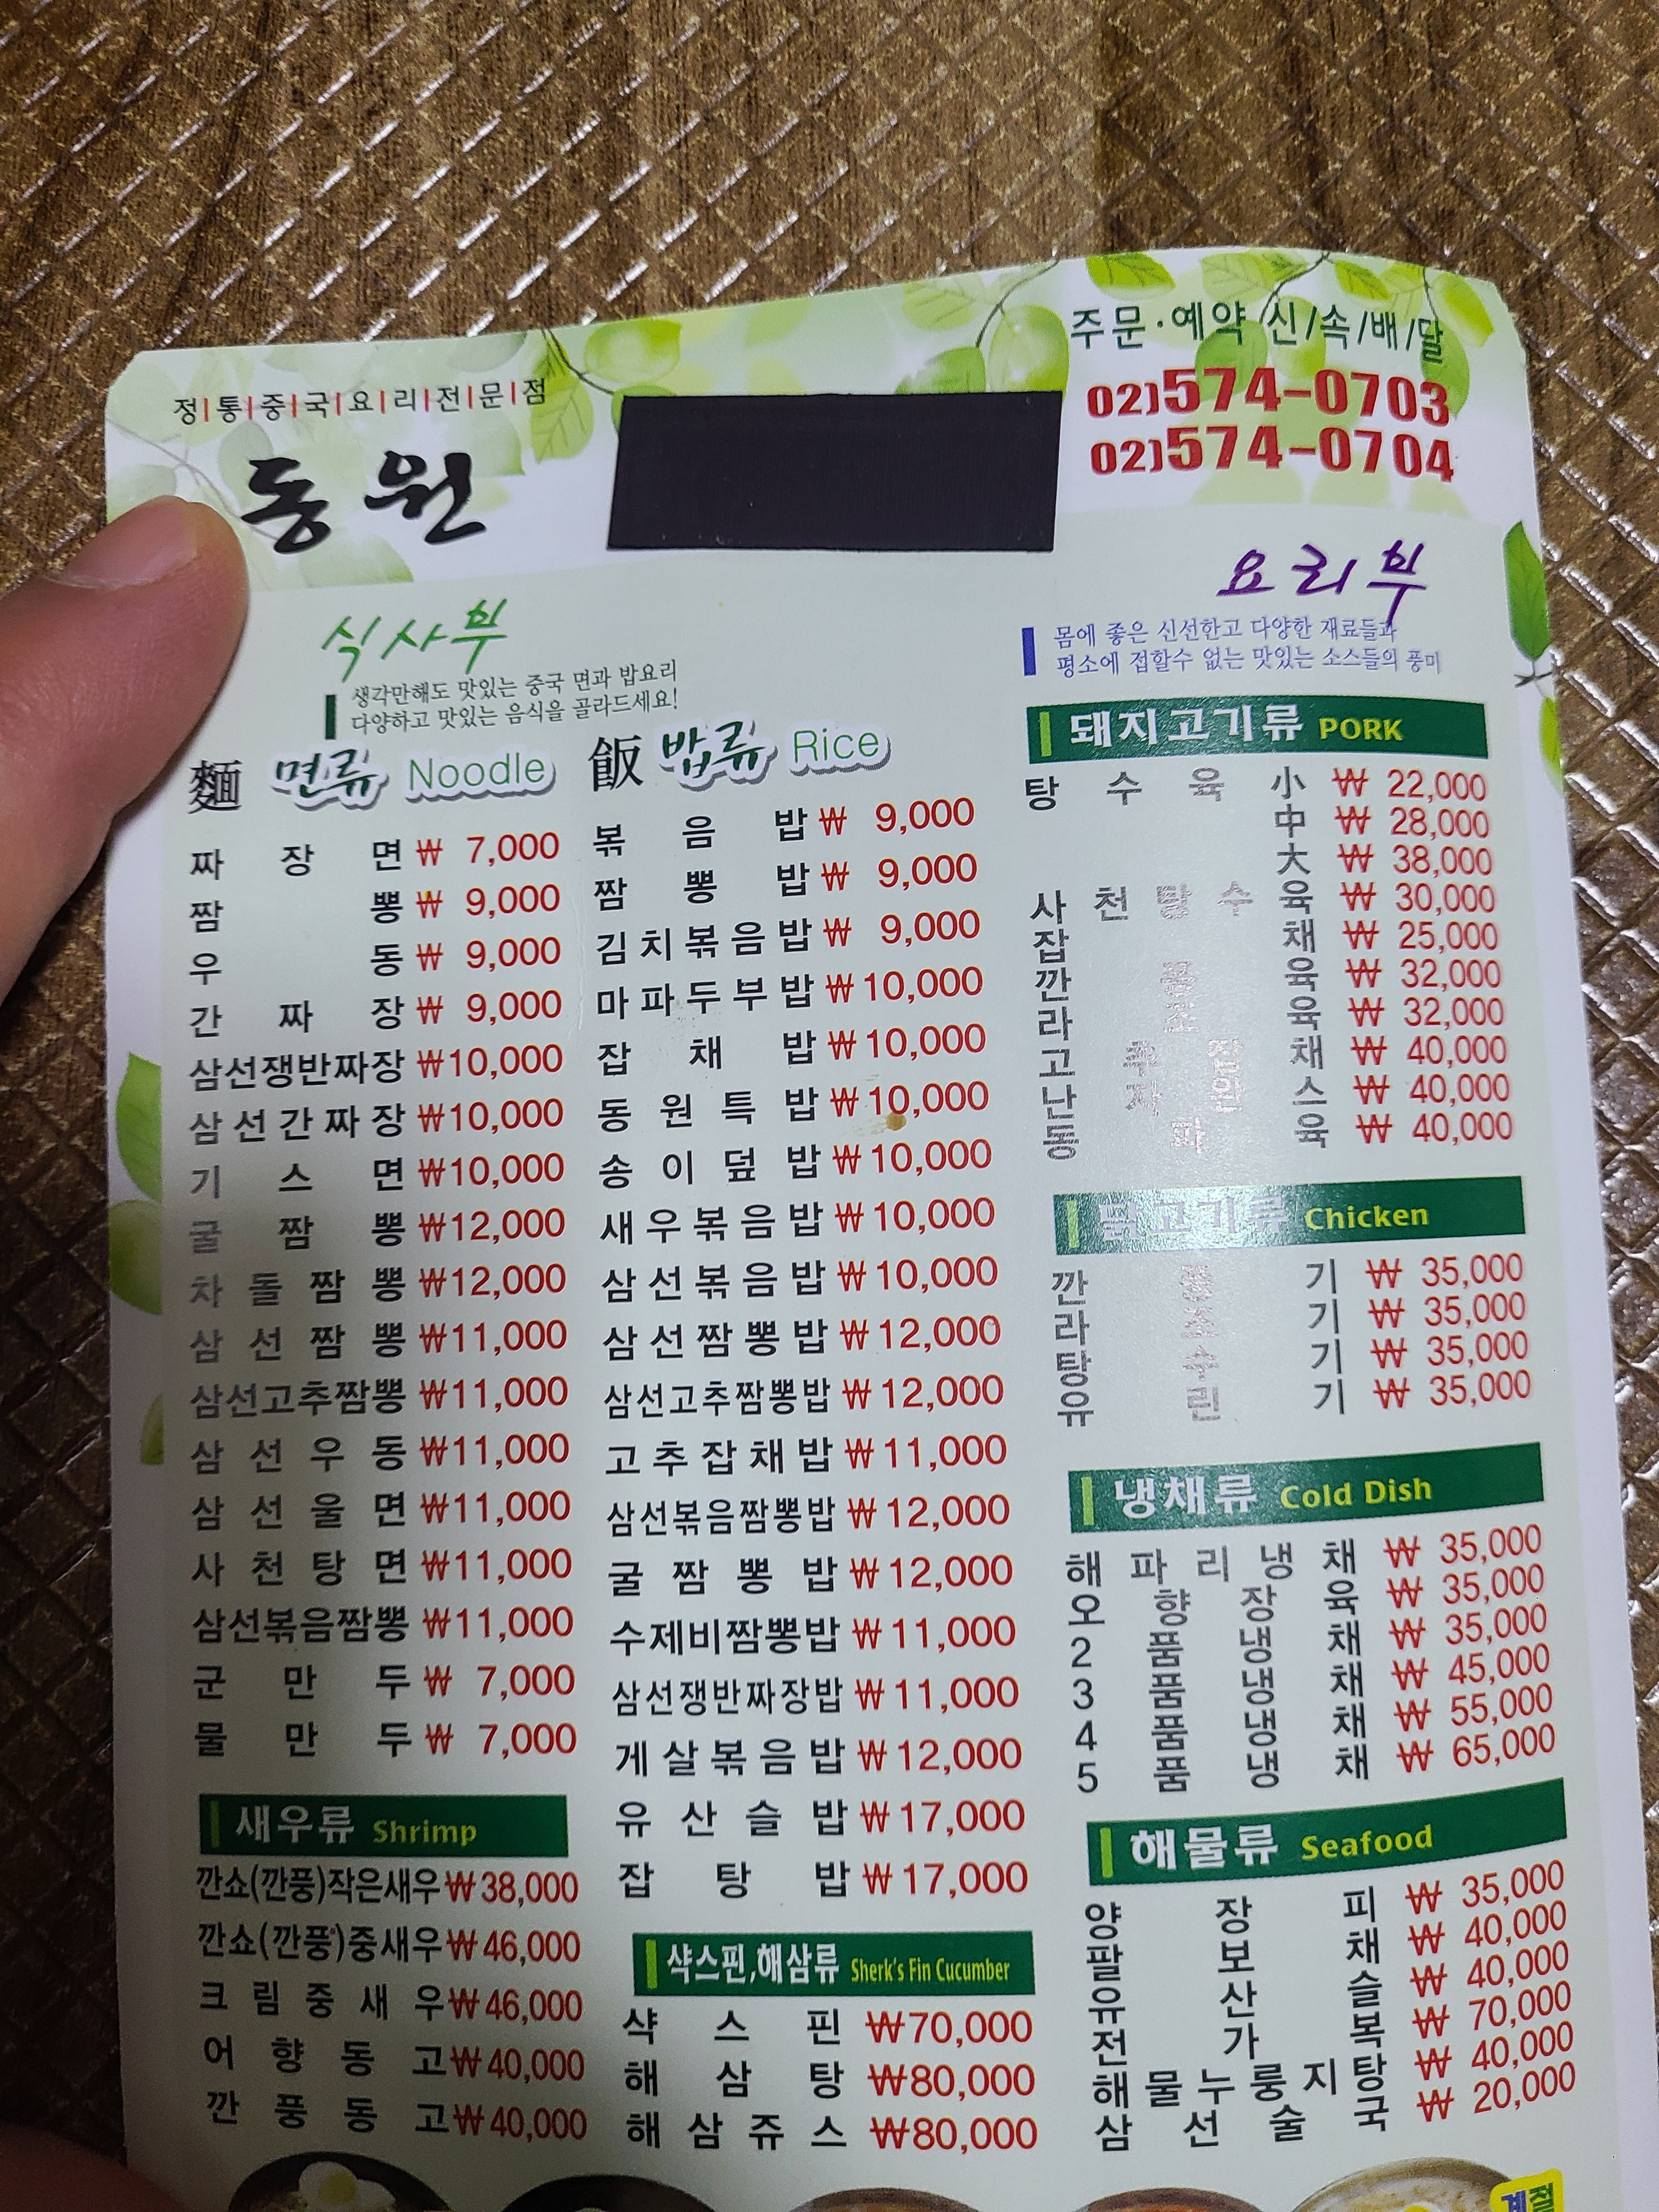 정|통|중|국|요|리|전|문|점
동원
주문·예약 신/속/배/달
02)574-0703
02)574-0704
식사부
생각만해도 맛있는 중국 면과 밥요리
다양하고 맛있는 음식을 골라드세요!
麵 면류 Noodle
짜장면 ₩ 7,000
짬뽕 ₩ 9,000
우동 ₩ 9,000
간짜장 ₩ 9,000
삼선쟁반짜장 ₩10,000
삼선간짜장 ₩10,000
기스면 ₩10,000
굴짬뽕 ₩12,000
차돌짬뽕 ₩12,000
삼선짬뽕 ₩11,000
삼선고추짬뽕 ₩11,000
삼선우동 ₩11,000
삼선울면 ₩11,000
사천탕면 ₩11,000
삼선볶음짬뽕 ₩11,000
군만두 ₩ 7,000
물만두 ₩ 7,000
새우류 Shrimp
깐쇼(깐풍)작은새우 ₩38,000
깐쇼(깐풍)중새우 ₩46,000
크림중새우 ₩46,000
어향동고 ₩40,000
깐풍동고 ₩40,000
飯 밥류 Rice
볶음밥 ₩ 9,000
짬뽕밥 ₩ 9,000
김치볶음밥 ₩ 9,000
마파두부밥 ₩10,000
잡채밥 ₩10,000
동원특밥 ₩10,000
송이덮밥 ₩10,000
새우볶음밥 ₩10,000
삼선볶음밥 ₩10,000
삼선짬뽕밥 ₩12,000
삼선고추짬뽕밥 ₩12,000
고추잡채밥 ₩11,000
삼선볶음짬뽕밥 ₩12,000
굴짬뽕밥 ₩12,000
수제비짬뽕밥 ₩11,000
삼선쟁반짜장밥 ₩11,000
게살볶음밥 ₩12,000
유산슬밥 ₩17,000
잡탕밥 ₩17,000
샥스핀,해삼류 Sherk's Fin Cucumber
샥스핀 ₩70,000
해삼탕 ₩80,000
해삼쥬스 ₩80,000
요리부
몸에 좋은 신선한고 다양한 재료들과
평소에 접할수 없는 맛있는 소스들의 풍미
돼지고기류 PORK
탕수육 小 ₩ 22,000
中 ₩ 28,000
大 ₩ 38,000
사천탕수육 ₩ 30,000
잡채 ₩ 25,000
깐풍육 ₩ 32,000
라조육 ₩ 32,000
고추잡채 ₩ 40,000
난자완스 ₩ 40,000
동파육 ₩ 40,000
닭고기류 Chicken
깐풍기 ₩ 35,000
라조기 ₩ 35,000
탕수기 ₩ 35,000
유린기 ₩ 35,000
냉채류 Cold Dish
해파리냉채 ₩ 35,000
오향장육 ₩ 35,000
2품냉채 ₩ 35,000
3품냉채 ₩ 45,000
4품냉채 ₩ 55,000
5품냉채 ₩ 65,000
해물류 Seafood
양장피 ₩ 35,000
팔보채 ₩ 40,000
유산슬 ₩ 40,000
전가복 ₩ 70,000
해물누룽지탕 ₩ 40,000
삼선술국 ₩ 20,000
계절